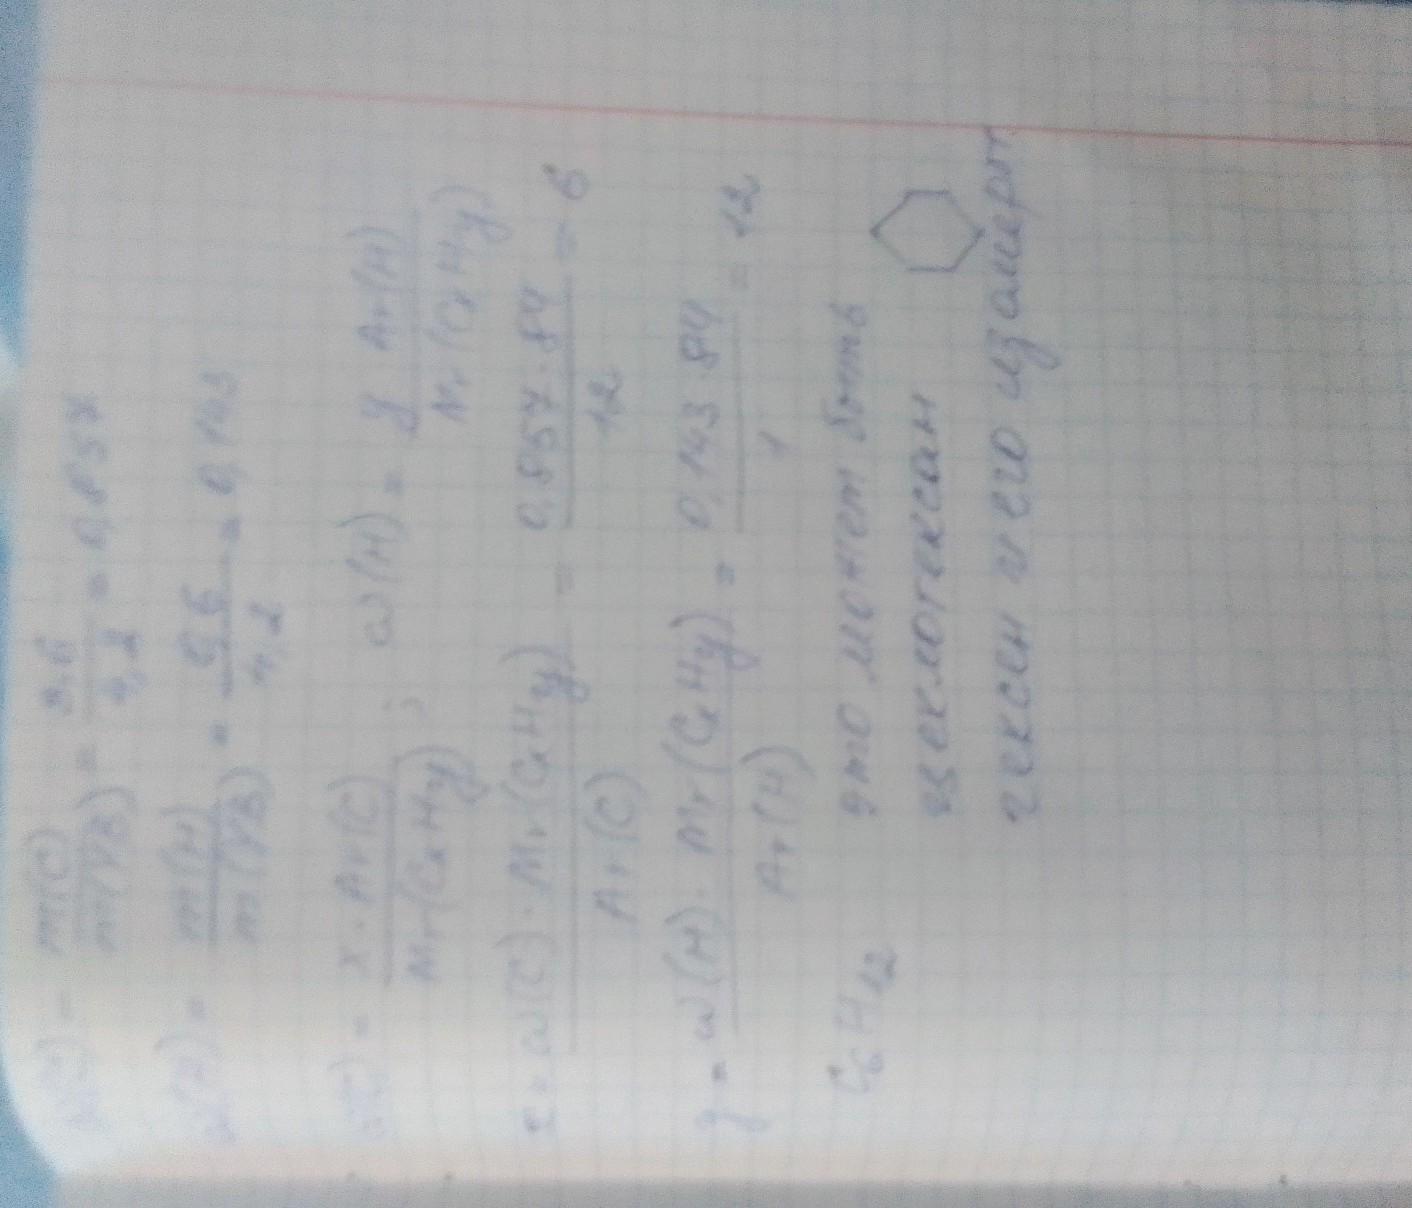 ω(C) = m(C) / m(УВ) = 3.6 / 4,2 = 0,857
ω(H) = m(H) / m(УВ) = 0,6 / 4,2 = 0,143
ω(C) = x · Ar(C) / Mr(CxHy) ; ω(H) = y Ar(H) / Mr(CxHy)
x = ω(C) · Mr(CxHy) / Ar(C) = 0,857 · 84 / 12 = 6
y = ω(H) · Mr(CxHy) / Ar(H) = 0,143 84 / 1 = 12
C6H12 это может быть
циклогексан
гексен и его изамеры